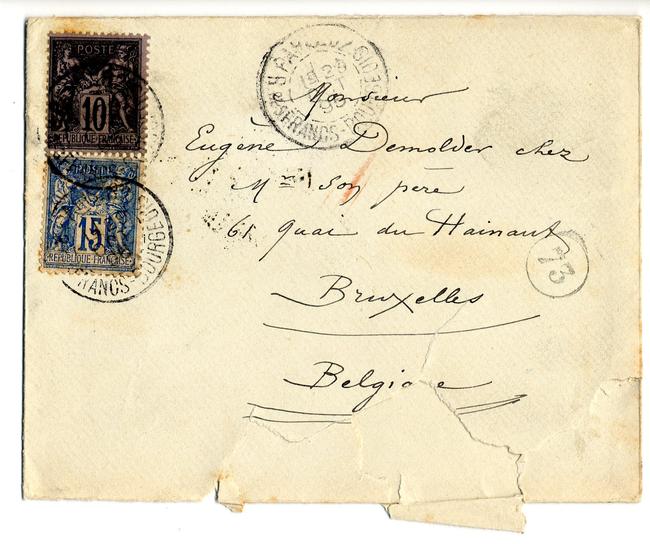 POSTE
10
REPUBLIQUE FRANÇAISE
15
REPUBLIQUE FRANÇAISE
FRANCS-BOURGEOIS
Monsieur
Eugène Demolder chez
Mr son père
61 Quai du Hainaut
Bruxelles
Belgique
73